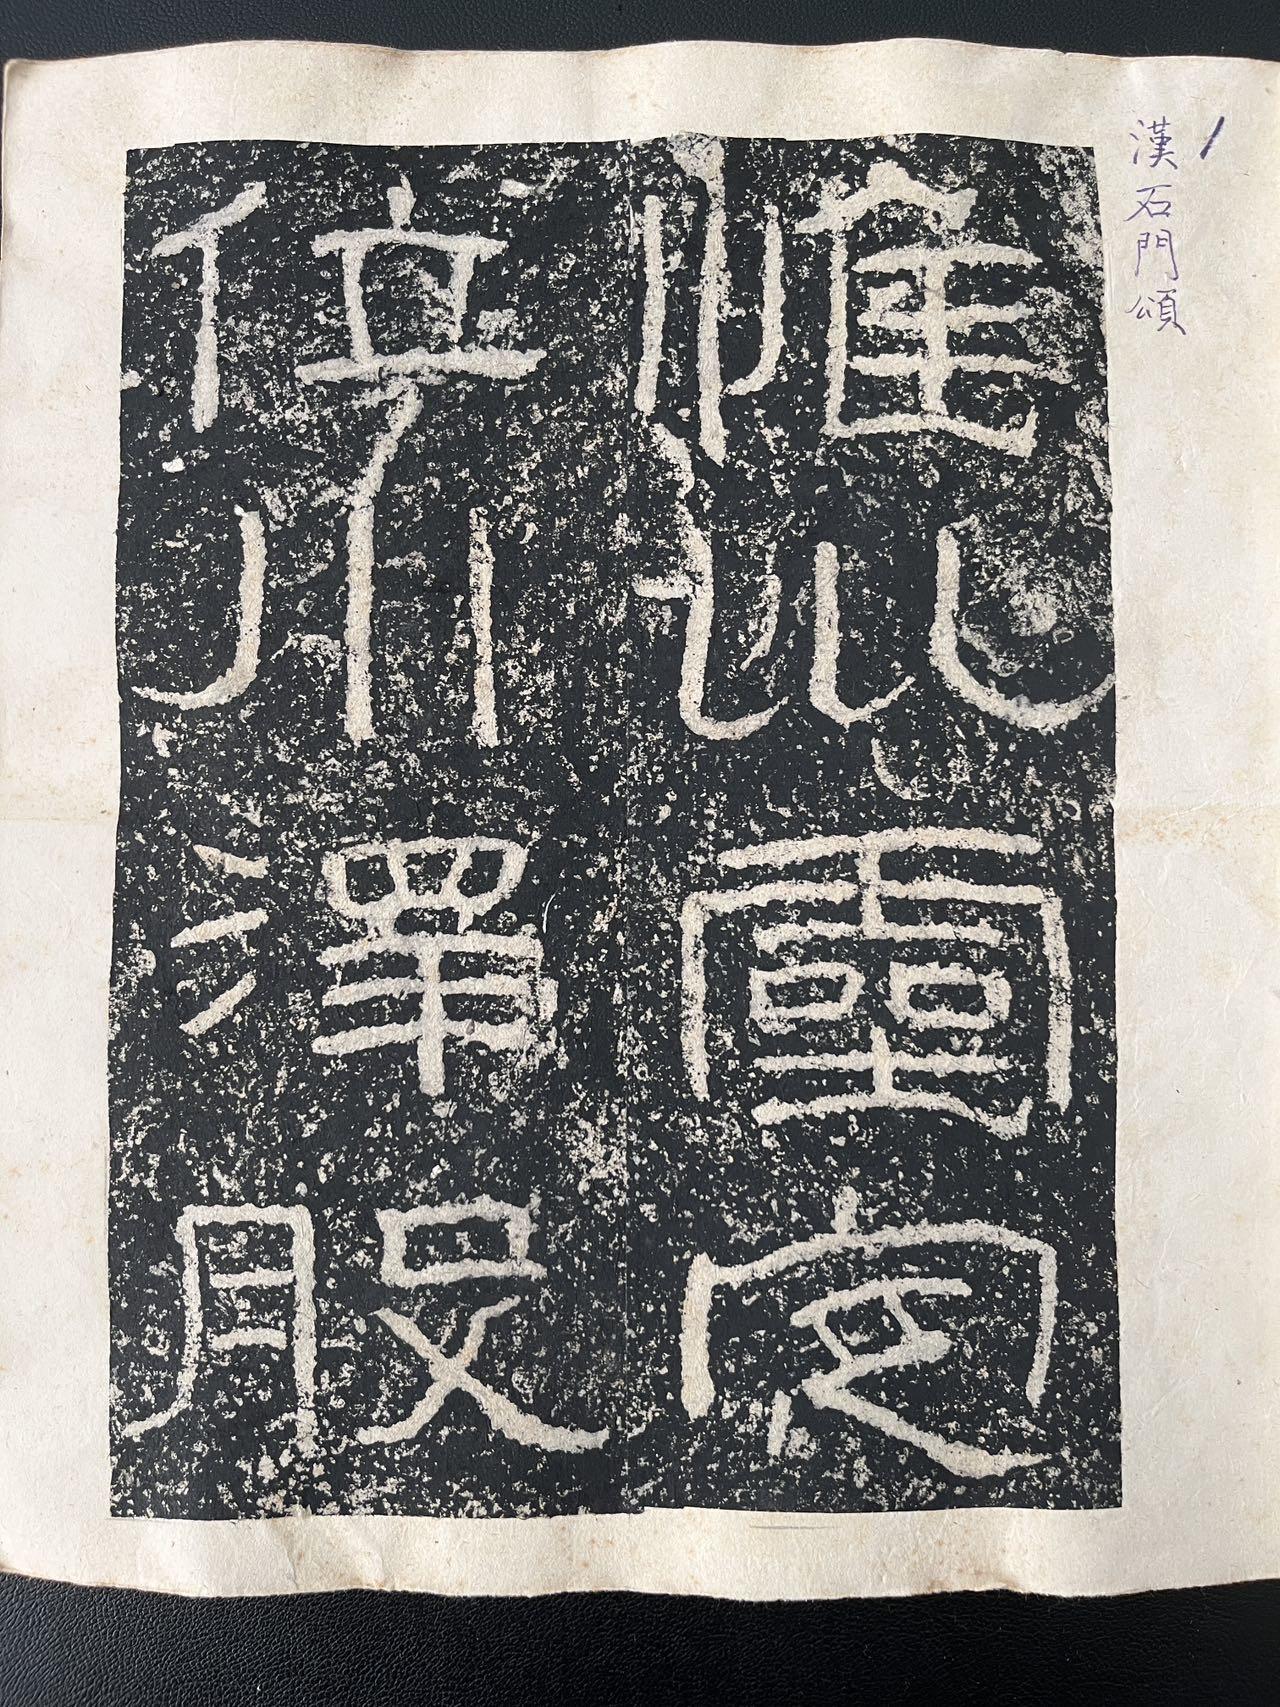 1
漢石門頌
惟巛靈定
位川澤股